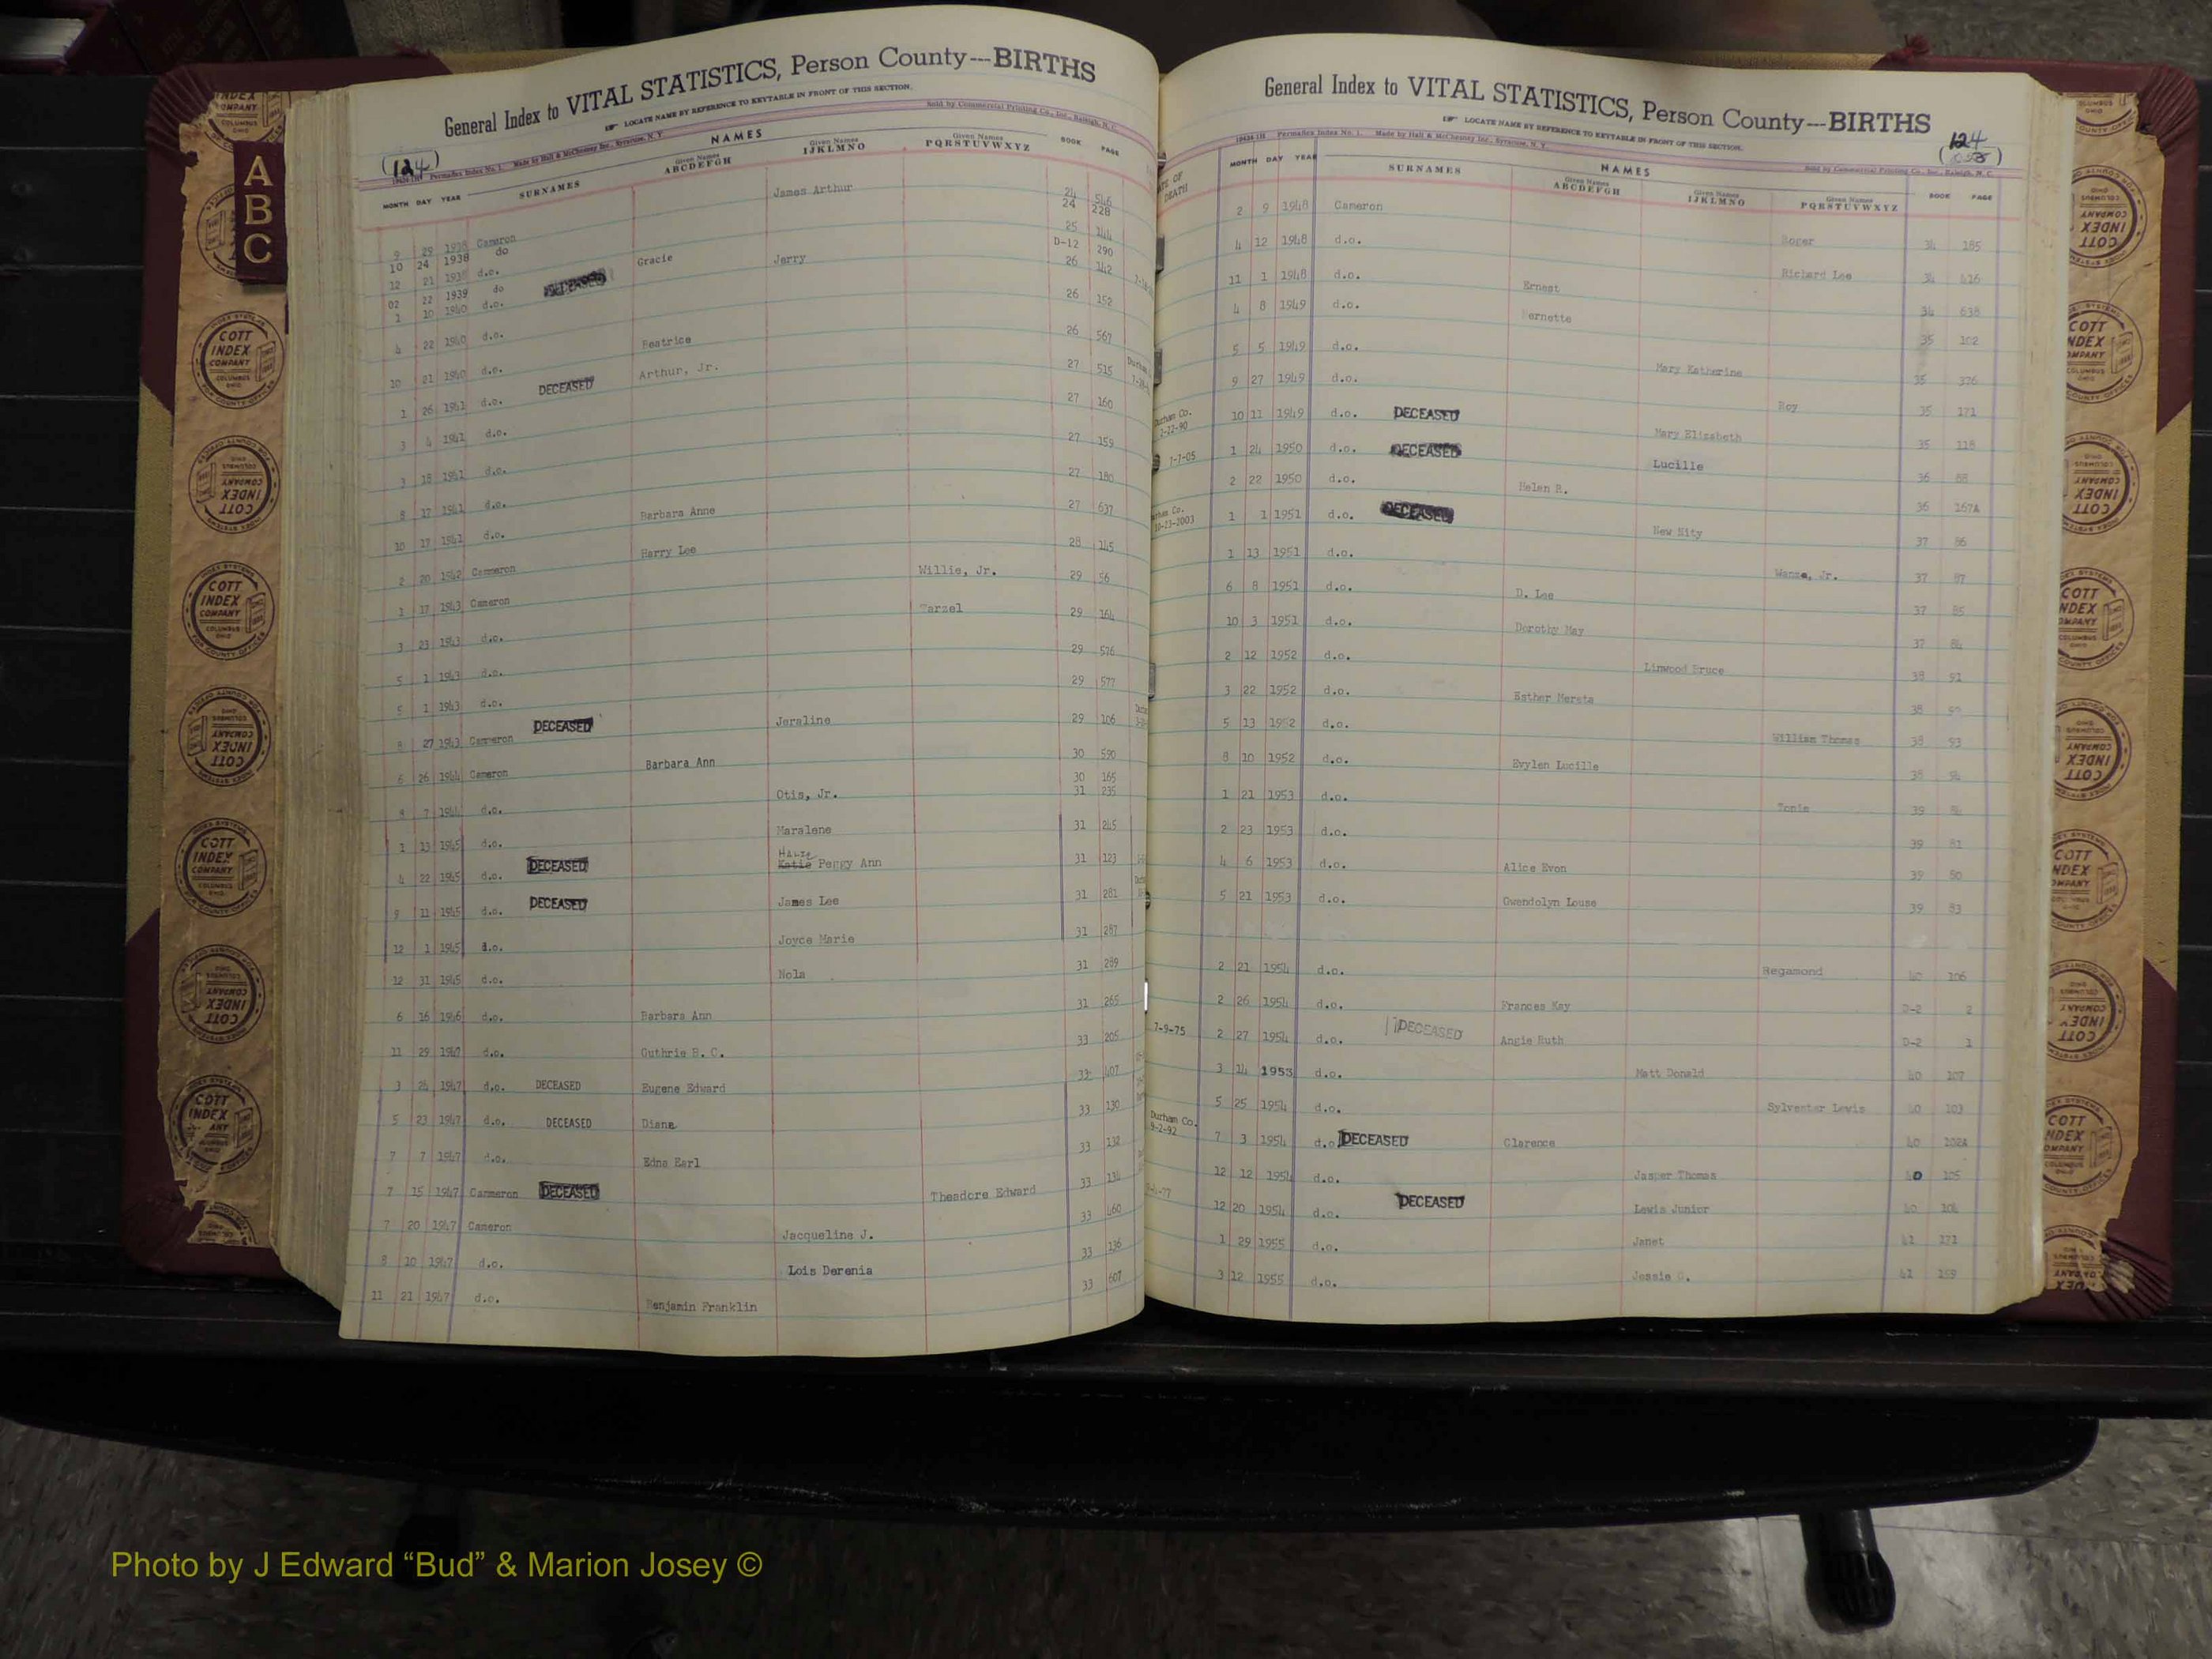 General Index to VITAL STATISTICS, Person County---BIRTHS
LOCATE NAME BY REFERENCE TO KEYTABLE IN FRONT OF THIS SECTION.
(124)
Made by Hall & McChesney Inc., Syracuse, N. Y.
Sold by Commercial Printing Co., Inc., Raleigh, N. C.
NAMES
MONTH DAY YEAR SURNAMES Given Names ABCDEFGH Given Names IJKLMNO Given Names PQRSTUVWXYZ BOOK PAGE
9 29 1938 Cameron James Arthur 24 546
10 24 1938 do 24 228
12 21 1938 d.o. 25 144
02 22 1939 do Gracie D-12 290
1 10 1940 d.o. Jerry 26 142
4 22 1940 d.o. 26 152
10 21 1940 d.o. Beatrice 26 567
1 26 1941 d.o. DECEASED Arthur, Jr. 27 515
3 4 1941 d.o. 27 160
3 18 1941 d.o. 27 159
8 17 1941 d.o. 27 180
10 17 1941 d.o. Barbara Anne 27 637
2 20 1942 Cameron Harry Lee 28 145
1 17 1943 Cameron Willie, Jr. 29 56
3 23 1943 d.o. 29 164
5 1 1943 d.o. 29 576
5 1 1943 d.o. 29 577
8 27 1943 Cameron DECEASED Jeraline 29 106
6 26 1944 Cameron Barbara Ann 30 590
9 7 1944 d.o. Otis, Jr. 30 165
31 235
1 13 1945 d.o. Maralene 31 245
4 22 1945 d.o. DECEASED Katie Peggy Ann 31 123
9 11 1945 d.o. DECEASED James Lee 31 281
12 1 1945 d.o. Joyce Marie 31 287
12 31 1945 d.o. Nola 31 289
6 16 1946 d.o. Barbara Ann 31 265
11 29 1947 d.o. Guthrie B. C. 33 205
3 24 1947 d.o. DECEASED Eugene Edward 33 407
5 23 1947 d.o. DECEASED Diane 33 130
7 7 1947 d.o. Edna Earl 33 132
7 15 1947 Cameron DECEASED Theadore Edward 33 134
7 20 1947 Cameron Jacqueline J. 33 460
8 10 1947 d.o. Lois Derenia 33 136
11 21 1947 d.o. Benjamin Franklin 33 607
General Index to VITAL STATISTICS, Person County---BIRTHS
LOCATE NAME BY REFERENCE TO KEYTABLE IN FRONT OF THIS SECTION.
124
Made by Hall & McChesney Inc., Syracuse, N. Y.
Sold by Commercial Printing Co., Inc., Raleigh, N. C.
NAMES
MONTH DAY YEAR SURNAMES Given Names ABCDEFGH Given Names IJKLMNO Given Names PQRSTUVWXYZ BOOK PAGE
2 9 1948 Cameron Roger 34 185
4 12 1948 d.o. Richard Lee 34 416
11 1 1948 d.o. Ernest 34 638
4 8 1949 d.o. 35 102
5 5 1949 d.o. Mary Katherine 35 376
9 27 1949 d.o. Roy 35 171
Durham Co.
10 11 1949 d.o. DECEASED Mary Elizabeth 35 118
7-7-05 1 24 1950 d.o. DECEASED Lucille 36 88
2 22 1950 d.o. Helen R. 36 167A
10-23-2003 1 1 1951 d.o. DECEASED New Nity 37 86
1 13 1951 d.o. Wanza, Jr. 37 87
6 8 1951 d.o. D. Lee 37 85
10 3 1951 d.o. Dorothy May 37 84
2 12 1952 d.o. Linwood Bruce 38 91
3 22 1952 d.o. Esther Mereta 38
5 13 1952 d.o. William Thomas 38 93
8 10 1952 d.o. Evylen Lucille 38
1 21 1953 d.o. 39
2 23 1953 d.o. 39 81
4 6 1953 d.o. Alice Evon 39 80
5 21 1953 d.o. Gwendolyn Louse 39 83
2 21 1954 d.o. Regamond 40 106
2 26 1954 d.o. Frances Kay D-2 2
7-9-75 2 27 1954 d.o. DECEASED Angie Ruth D-2 1
3 14 1953 d.o. Matt Donald 40 107
5 25 1954 d.o. Sylvester Lewis 40 103
Durham Co. 9-2-92
7 3 1954 d.o. DECEASED Clarence 40 102A
12 12 1954 d.o. Jasper Thomas 40 105
12 20 1954 d.o. DECEASED Lewis Junior 40 104
1 29 1955 d.o. Janet 41 171
3 12 1955 d.o. Jessie G. 41 159
A
B
C
COTT INDEX COMPANY COLUMBUS OHIO
Photo by J Edward “Bud” & Marion Josey ©